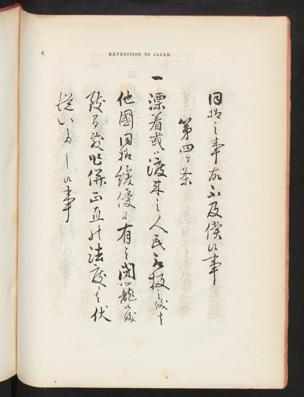 6
EXPEDITION TO JAPAN.
同様之事故不及償候事
第四ヶ条
一 漂着或ハ渡来之人民取扱之儀者
他國同様緩優ニ有之閉籠候儀
致間敷乍併正直之法度ニハ伏
従いたし候事